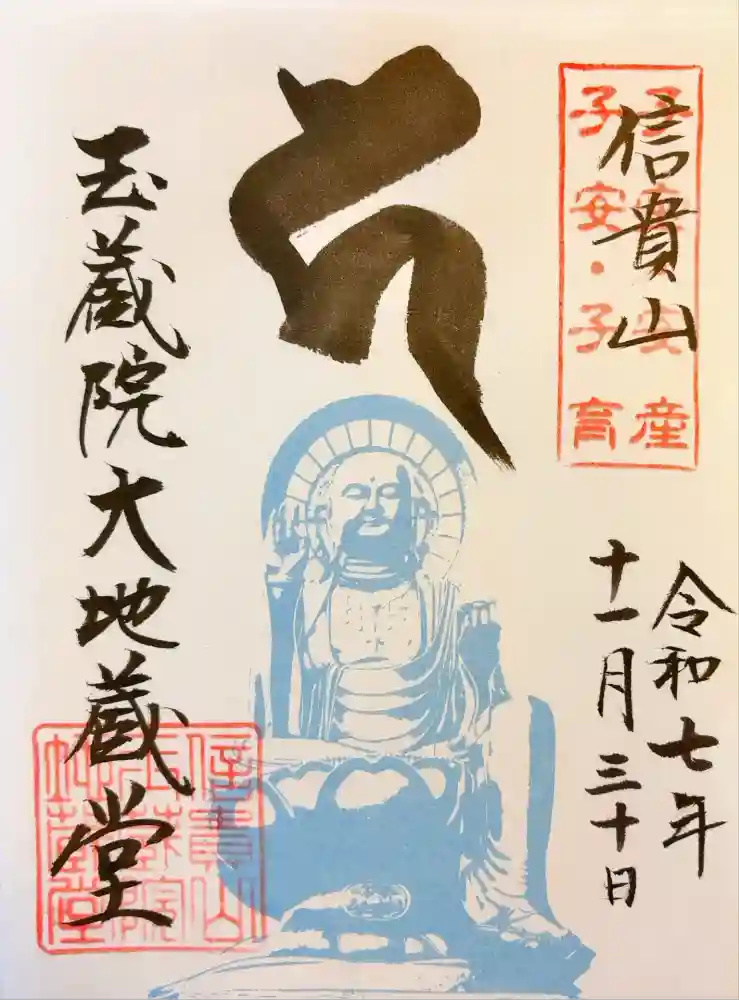 子安・安産
子安・子育
信貴山
令和七年
十一月三十日
玉蔵院大地蔵堂
信貴山
玉蔵院
地蔵堂